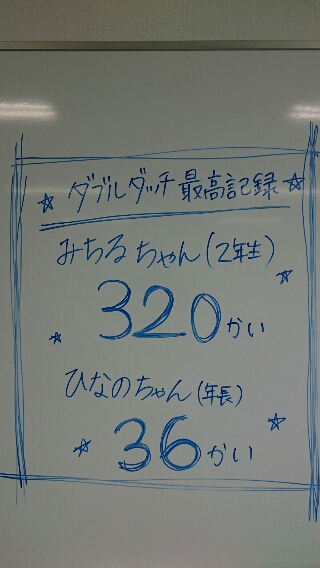 ☆ ダブルダッチ 最高記録 ☆
みちるちゃん(2年生)
320かい
ひなのちゃん(年長)
36かい